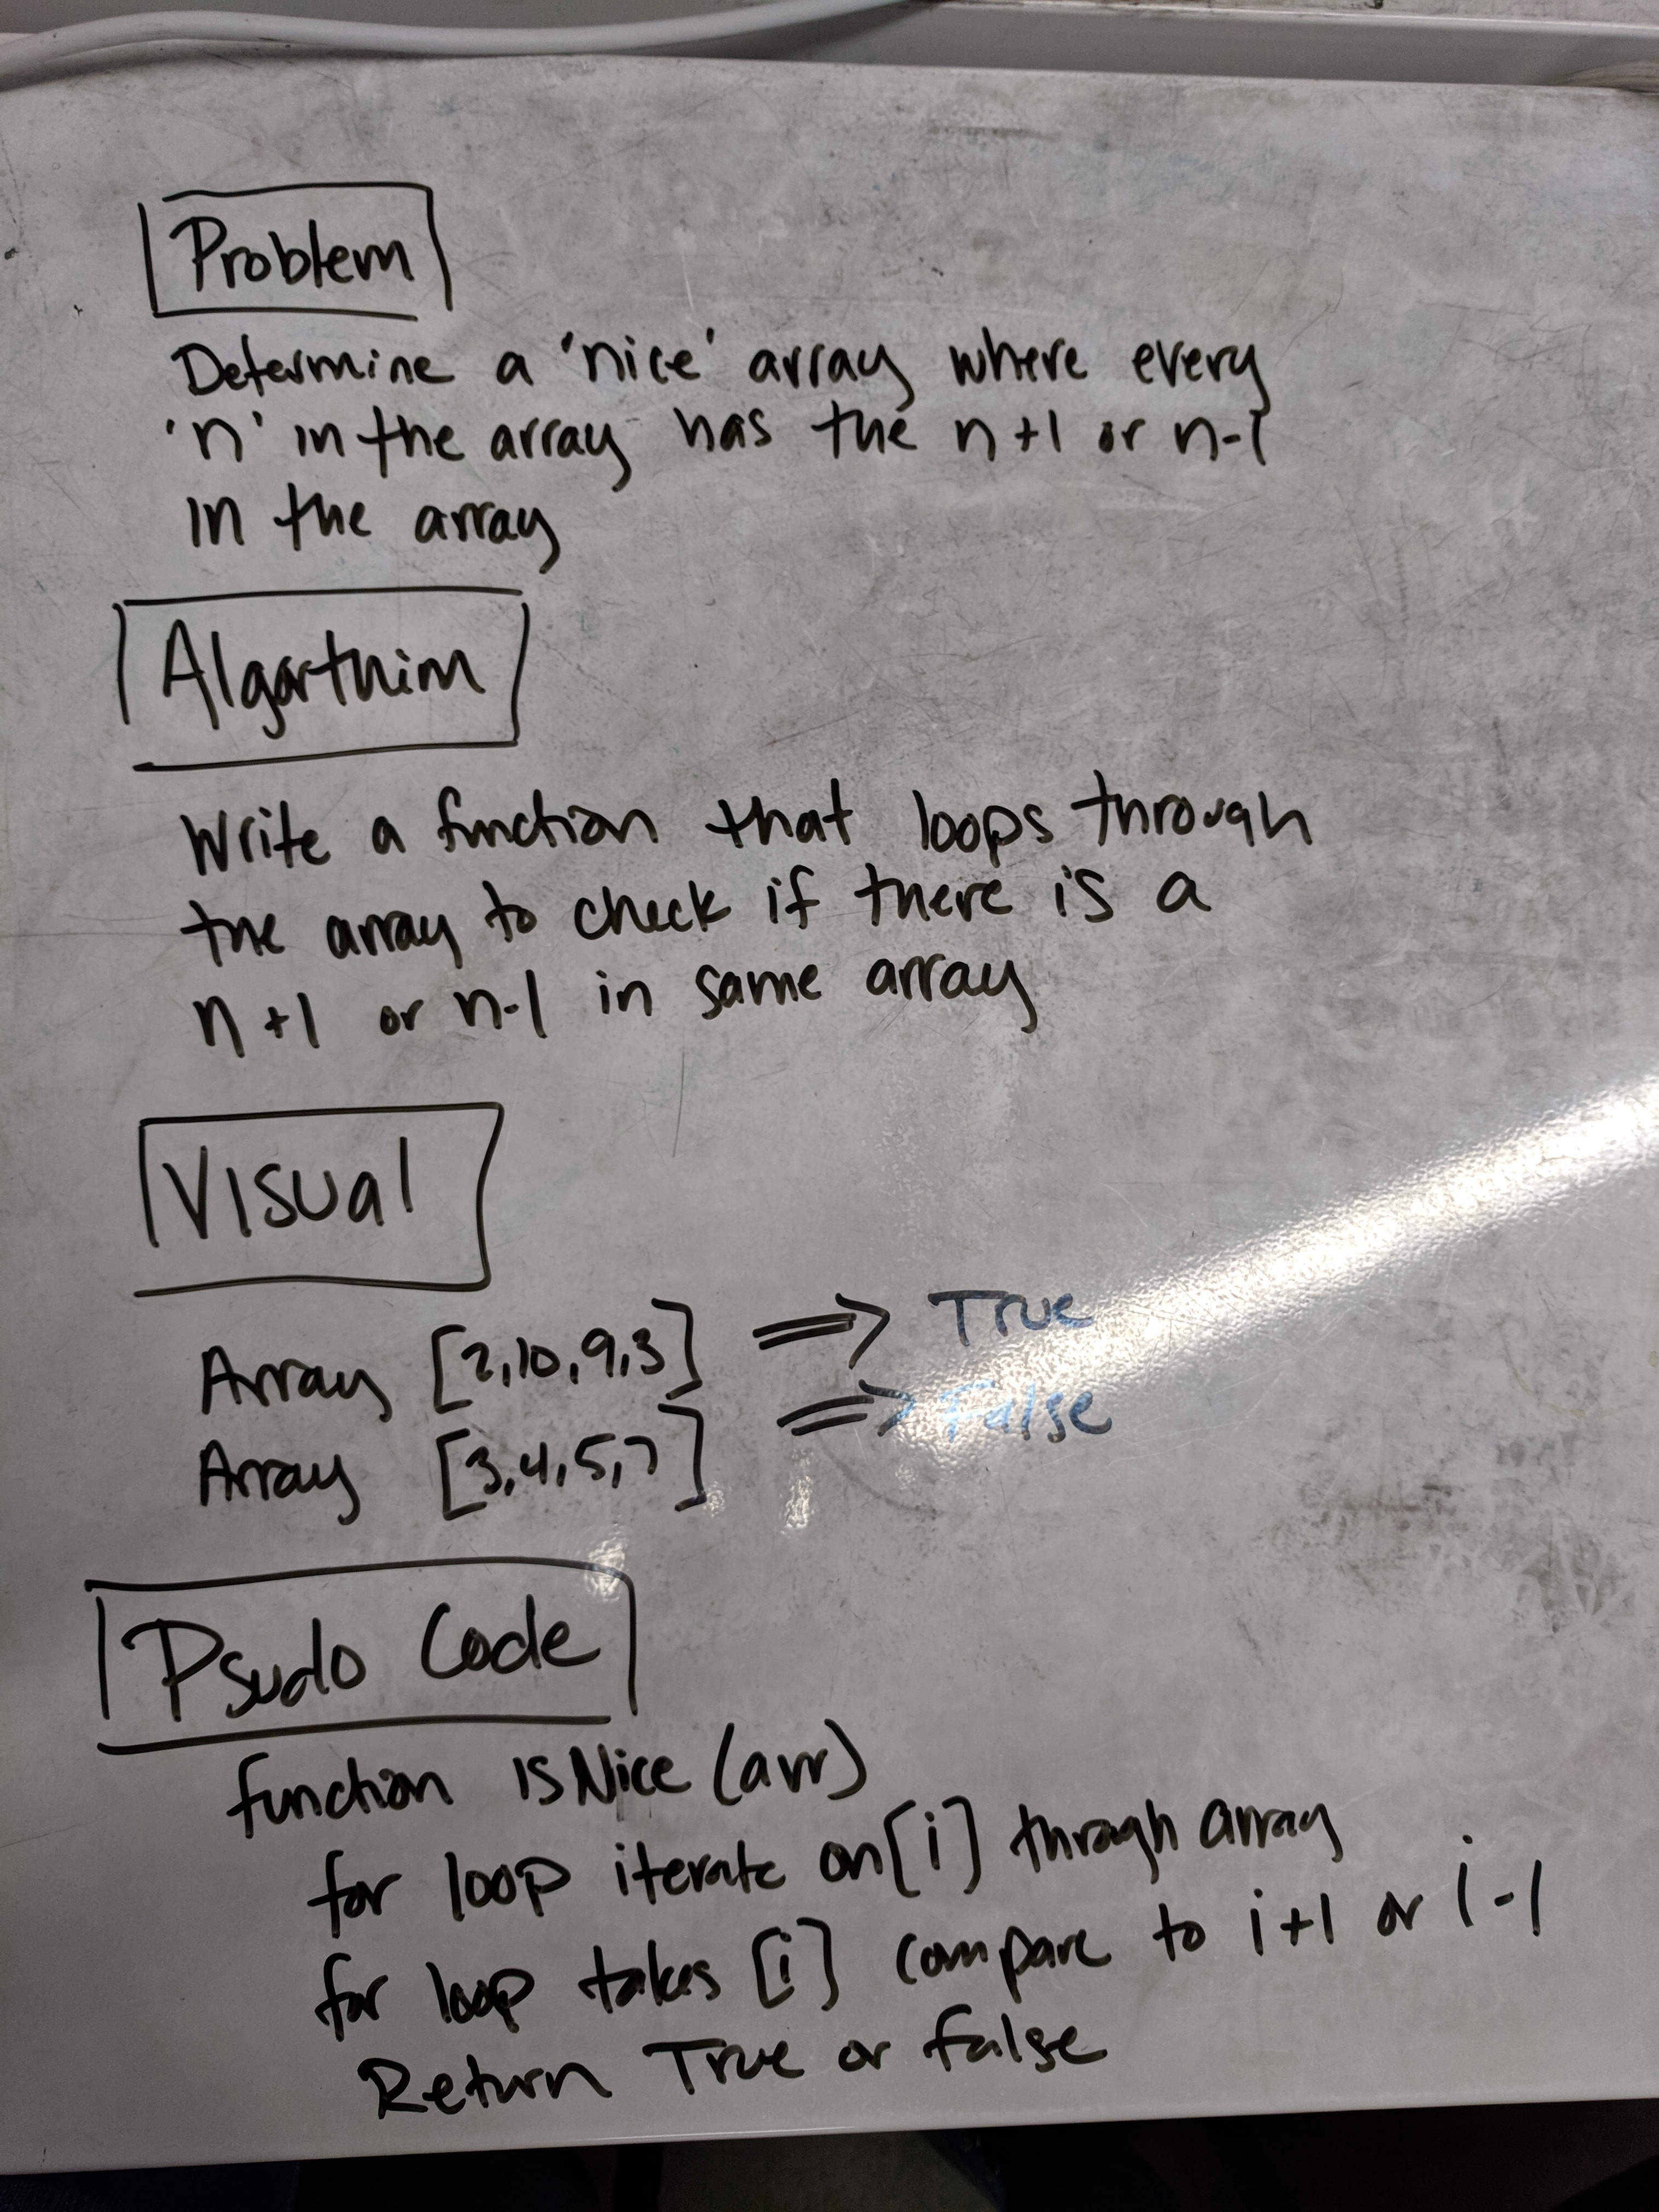 Problem
Determine a 'nice' array where every
'n' in the array has the n+1 or n-1
in the array
Algorthim
Write a function that loops through
the array to check if there is a
n+1 or n-1 in same array
Visual
Array [2,10,9,3] => True
Array [3,4,5,7] => False
Psudo Code
function isNice (arr)
for loop iterate on [i] through array
for loop takes [i] compare to i+1 or i-1
Return True or False